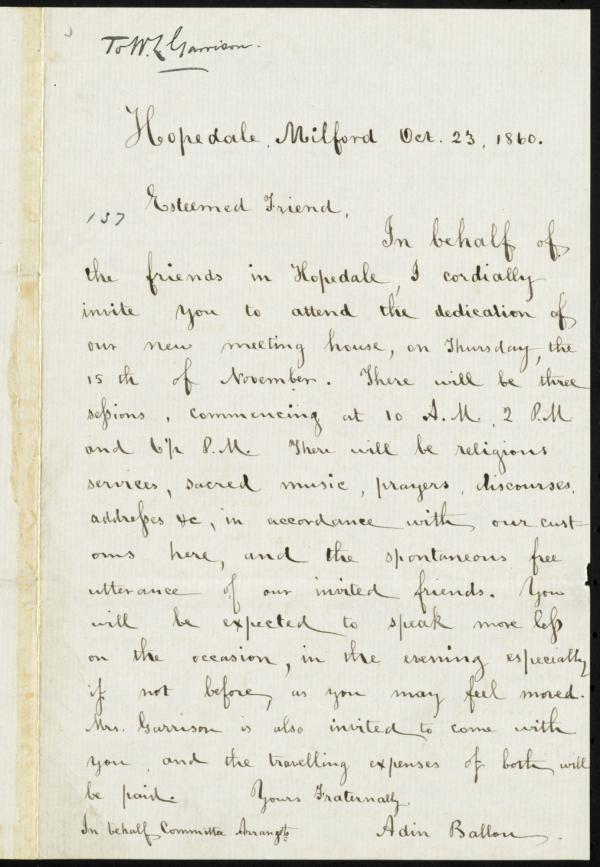 To W. L. Garrison.
Hopedale, Milford Oct. 23, 1860.
Esteemed Friend,
137
In behalf of
the friends in Hopedale, I cordially
invite you to attend the dedication of
our new meeting house, on Thursday, the
15th of November. There will be three
sessions, commencing at 10 A.M. 2 P.M
and 6½ P.M. There will be religious
services, sacred music, prayers, discourses,
addresses &c, in accordance with our cust-
oms here, and the spontaneous free
utterance of our invited friends. You
will be expected to speak more less
on the occasion, in the evening especially
if not before, as you may feel moved.
Mrs. Garrison is also invited to come with
you, and the travelling expenses of both will
be paid. Yours Fraternally
In behalf Committee Arrangts Adin Ballou.